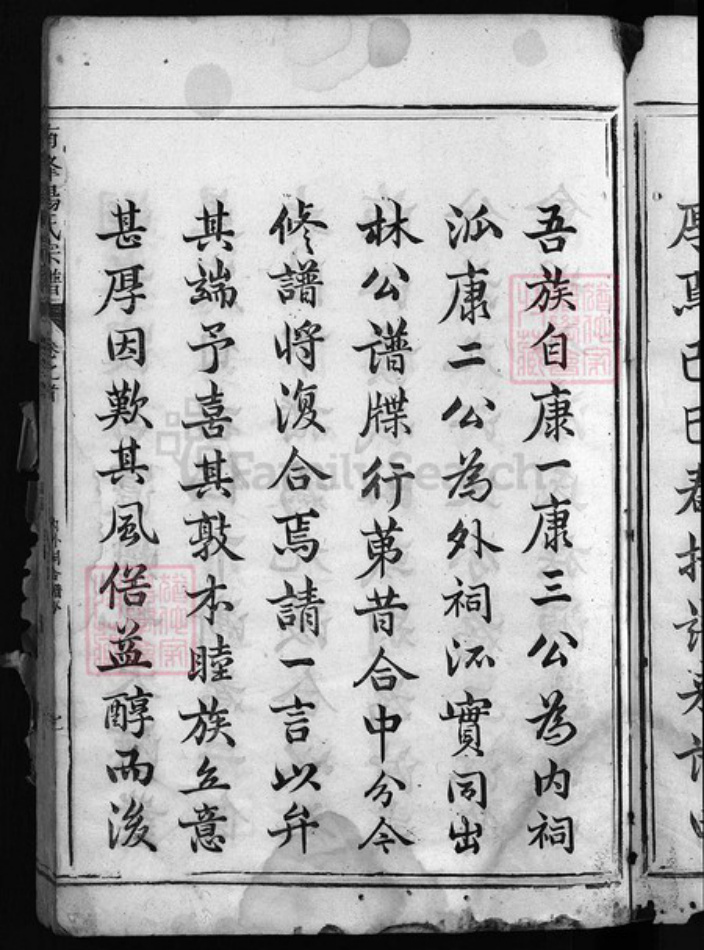 吾族自康一康三公為内祠
派康二公為外祠派實同出
林公譜牒行第昔合中分今
修譜將復合焉請一言以弁
其端予喜其敦本睦族立意
甚厚因歎其風俗益醇而後
氏宗譜
卷之首
FamilySearch